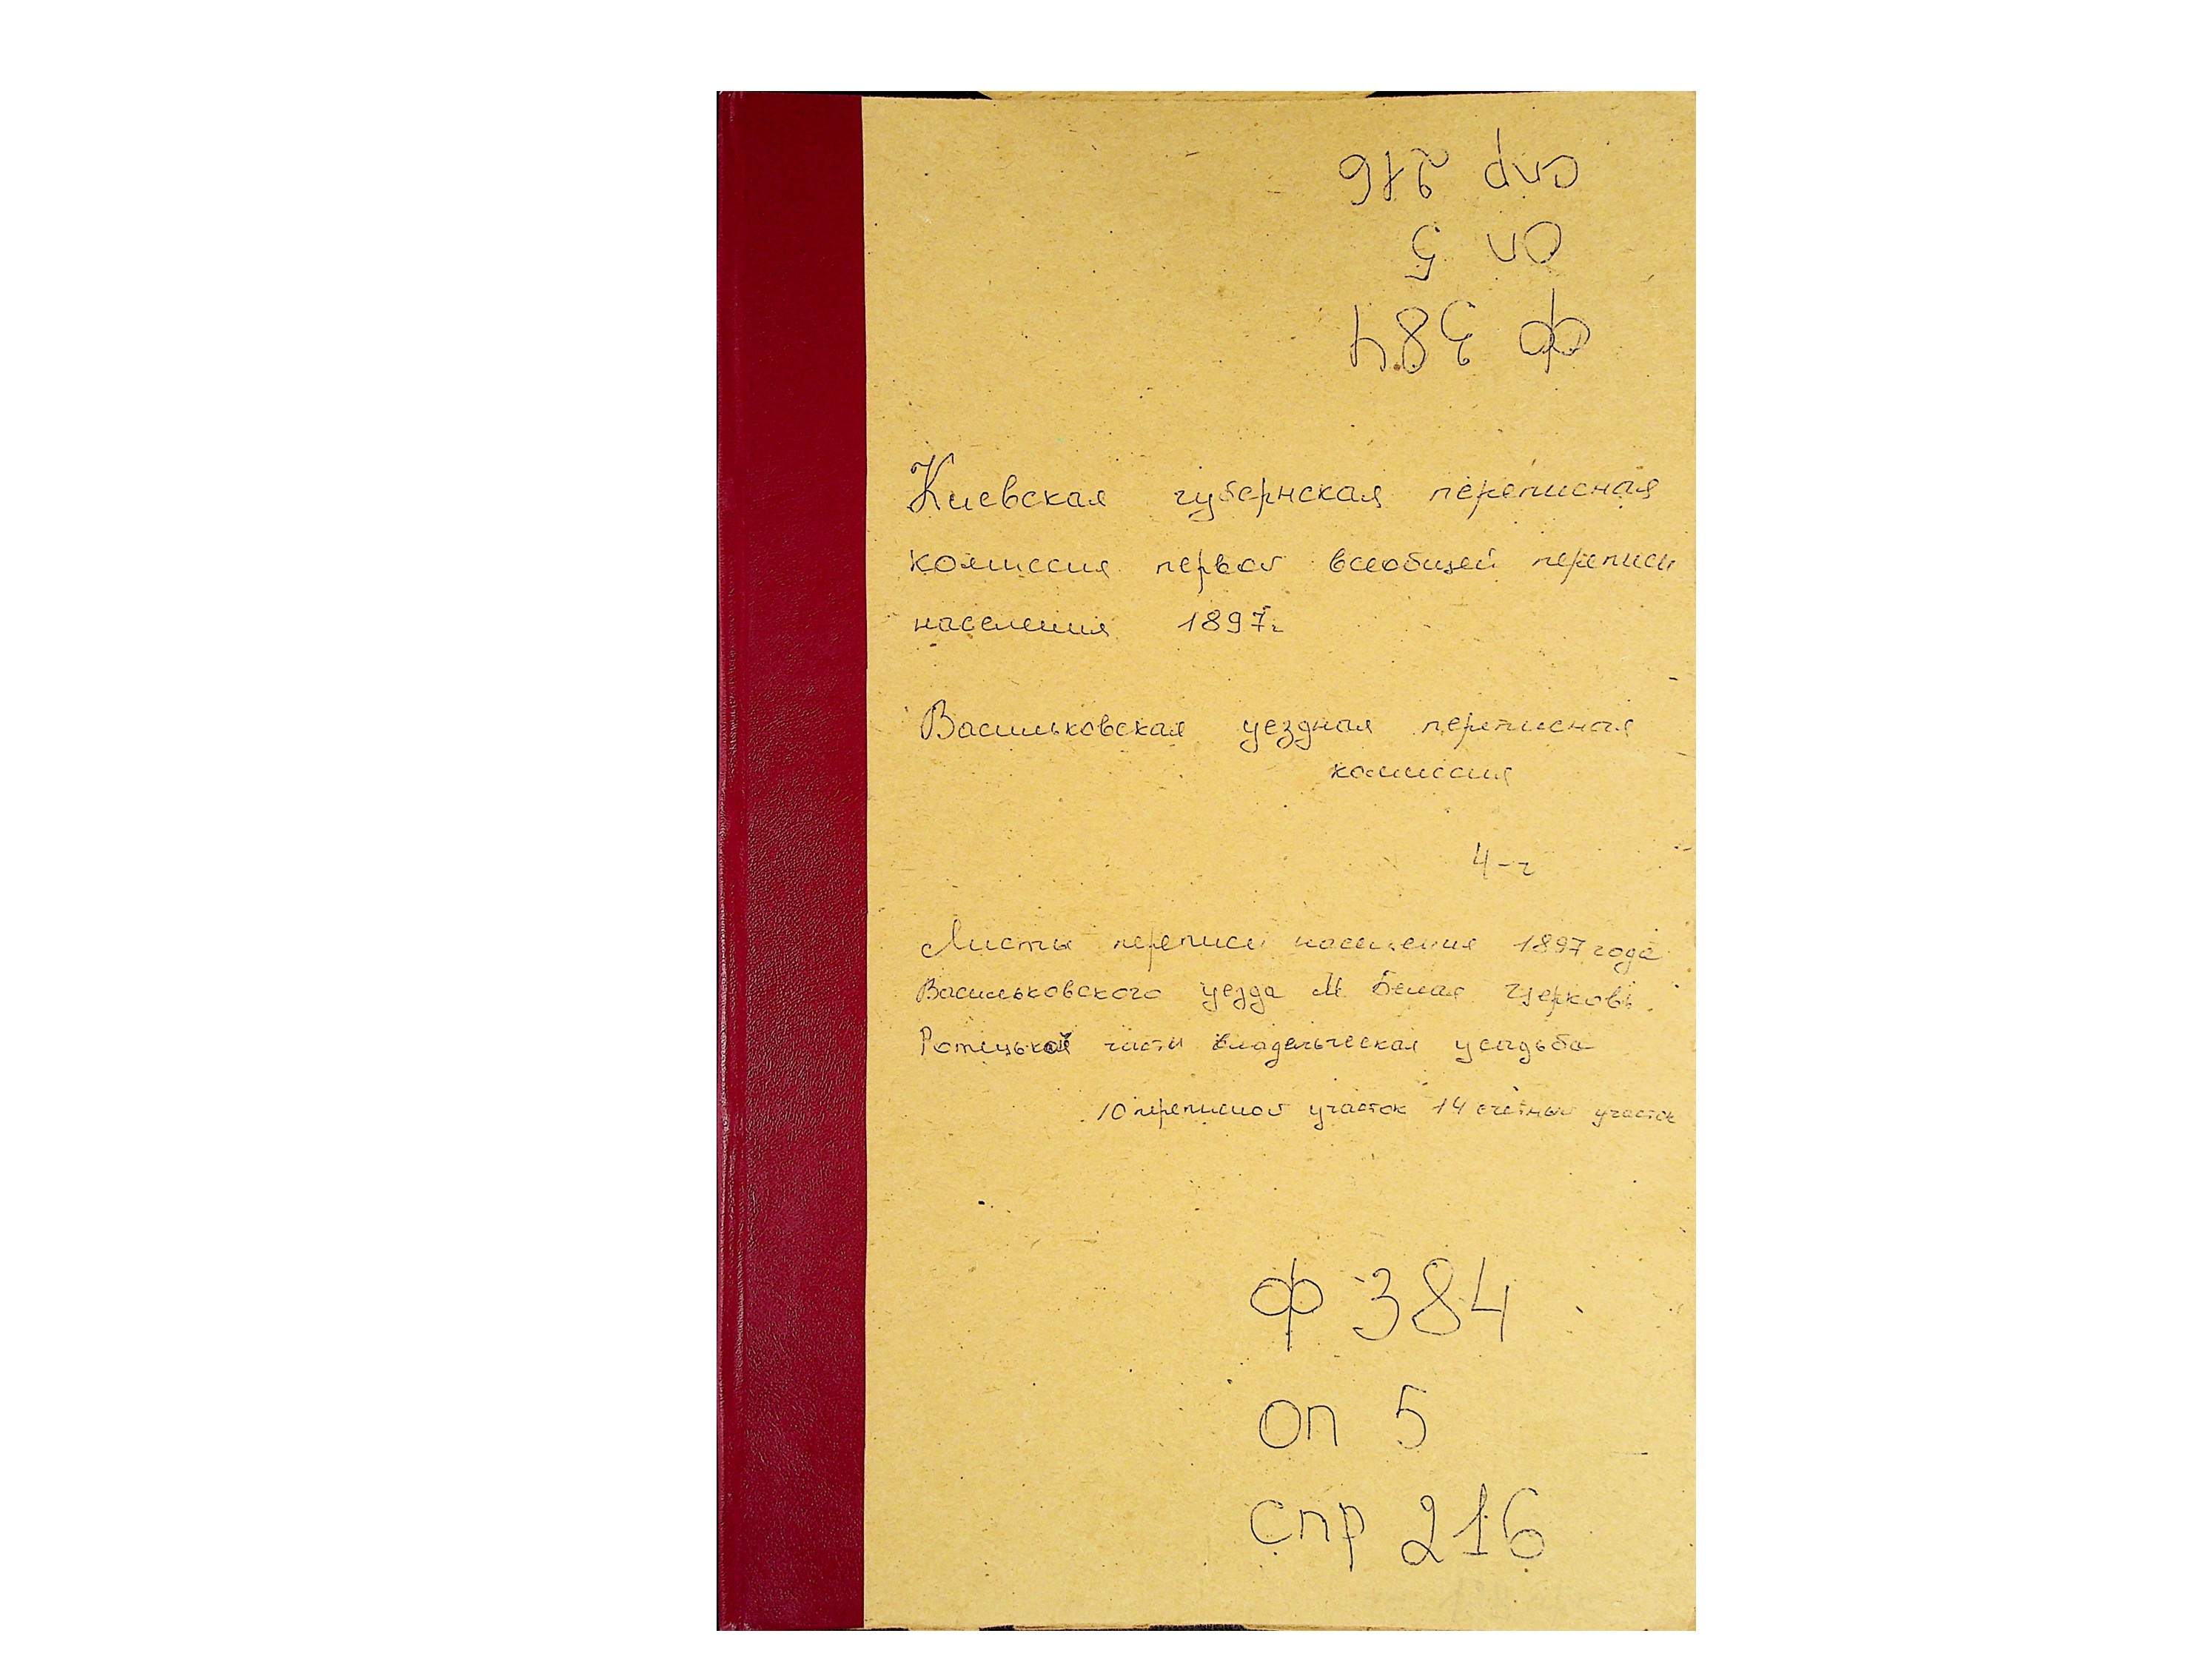 спр 216
оп 5
ф 384
Киевская губернская переписная
комиссия первой всеобщей переписи
населения 1897г
Васильковская уездная переписная
комиссия
4-г
Листы переписи населения 1897 года
Васильковского уезда М. Белая Церковь
части владельческая усадьба
10 переписной участок 14 счетный участок
ф 384
оп 5
спр 216